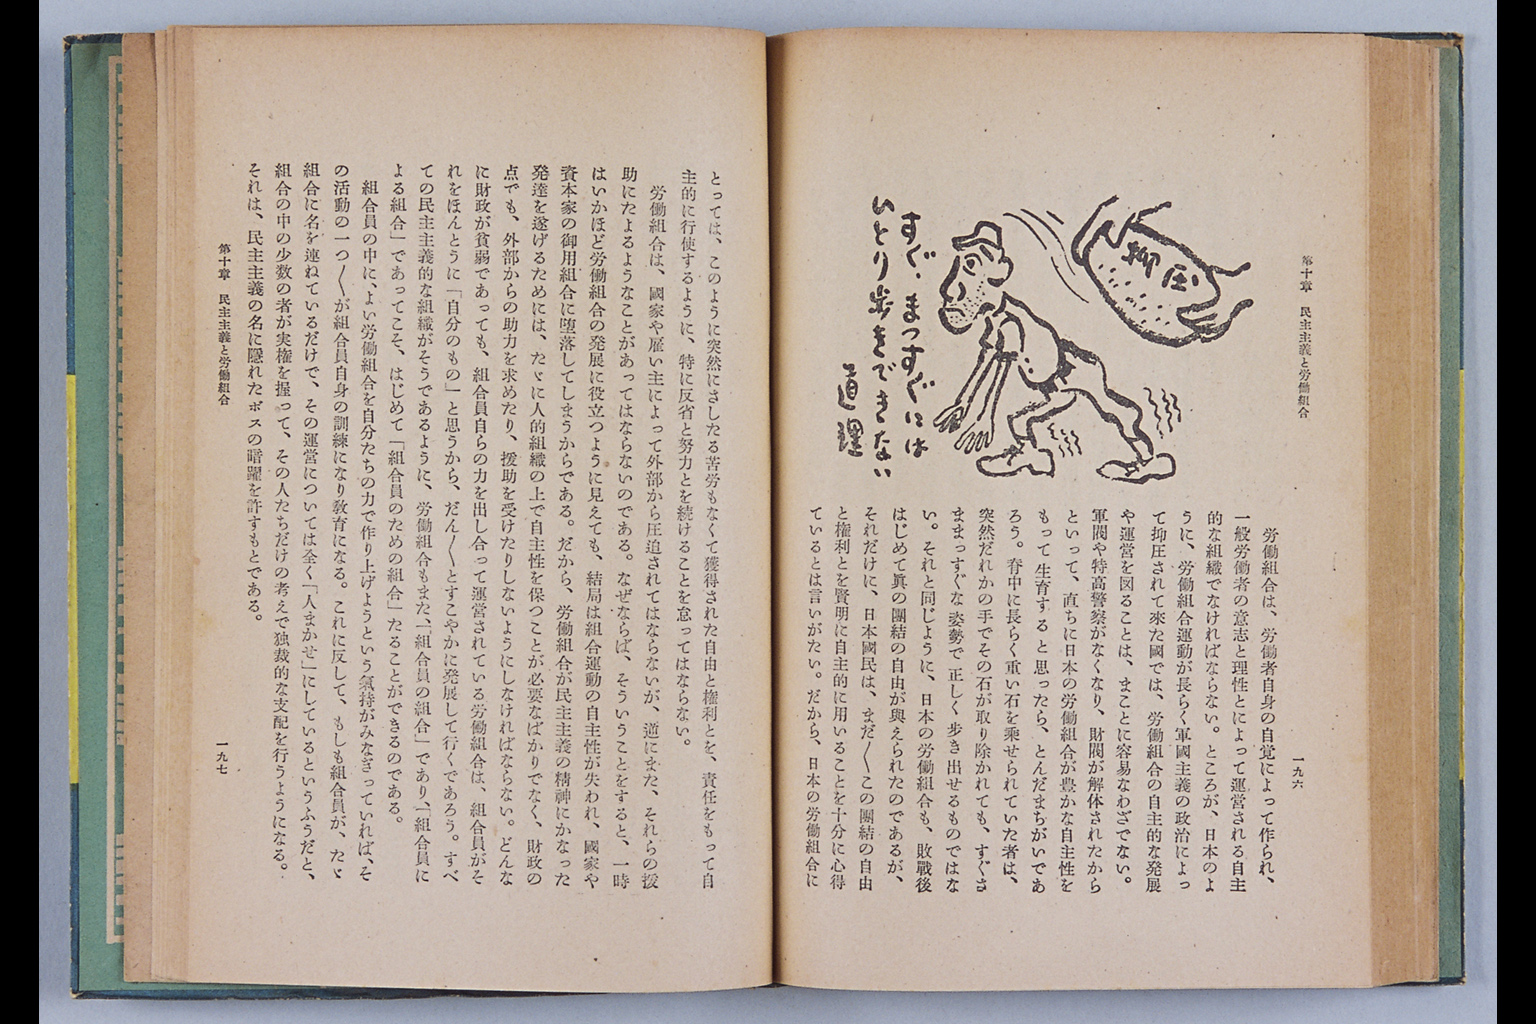 第十章　民主主義と労働組合
一九六
抑圧
すぐ、まつすぐには
ひとり歩きできない
道理
労働組合は、労働者自身の自覚によって作られ、
一般労働者の意志と理性とによって運営される自主
的な組織でなければならない。ところが、日本のよ
うに、労働組合運動が長らく軍國主義の政治によっ
て抑圧されて來た國では、労働組合の自主的な発展
や運営を図ることは、まことに容易なわざでない。
軍閥や特高警察がなくなり、財閥が解体されたから
といって、直ちに日本の労働組合が豊かな自主性を
もって生育すると思ったら、とんだまちがいであ
ろう。脊中に長らく重い石を乘せられていた者は、
突然だれかの手でその石が取り除かれても、すぐさ
ままっすぐな姿勢で正しく歩き出せるものではな
い。それと同じように、日本の労働組合も、敗戰後
はじめて眞の團結の自由が與えられたのであるが、
それだけに、日本國民は、まだ〳〵この團結の自由
と権利とを賢明に自主的に用いることを十分に心得
ているとは言いがたい。だから、日本の労働組合に
とっては、このように突然にさしたる苦労もなくて獲得された自由と権利とを、責任をもって自
主的に行使するように、特に反省と努力とを続けることを怠ってはならない。
労働組合は、國家や雇い主によって外部から圧迫されてはならないが、逆にまた、それらの援
助にたよるようなことがあってはならないのである。なぜならば、そういうことをすると、一時
はいかほど労働組合の発展に役立つように見えても、結局は組合運動の自主性が失われ、國家や
資本家の御用組合に堕落してしまうからである。だから、労働組合が民主主義の精神にかなった
発達を遂げるためには、たゞに人的組織の上で自主性を保つことが必要なばかりでなく、財政の
点でも、外部からの助力を求めたり、援助を受けたりしないようにしなければならない。どんな
に財政が貧弱であっても、組合員自らの力を出し合って運営されている労働組合は、組合員がそ
れをほんとうに「自分のもの」と思うから、だん〳〵とすこやかに発展して行くであろう。すべ
ての民主主義的な組織がそうであるように、労働組合もまた、「組合員の組合」であり、「組合員に
よる組合」であってこそ、はじめて「組合員のための組合」たることができるのである。
組合員の中に、よい労働組合を自分たちの力で作り上げようという氣持がみなぎっていれば、そ
の活動の一つ〳〵が組合員自身の訓練になり教育になる。これに反して、もしも組合員が、たゞ
組合に名を連ねているだけで、その運営については全く「人まかせ」にしているというふうだと、
組合の中の少数の者が実権を握って、その人たちだけの考えで独裁的な支配を行うようになる。
それは、民主主義の名に隠れたボスの暗躍を許すもとである。
第十章　民主主義と労働組合
一九七